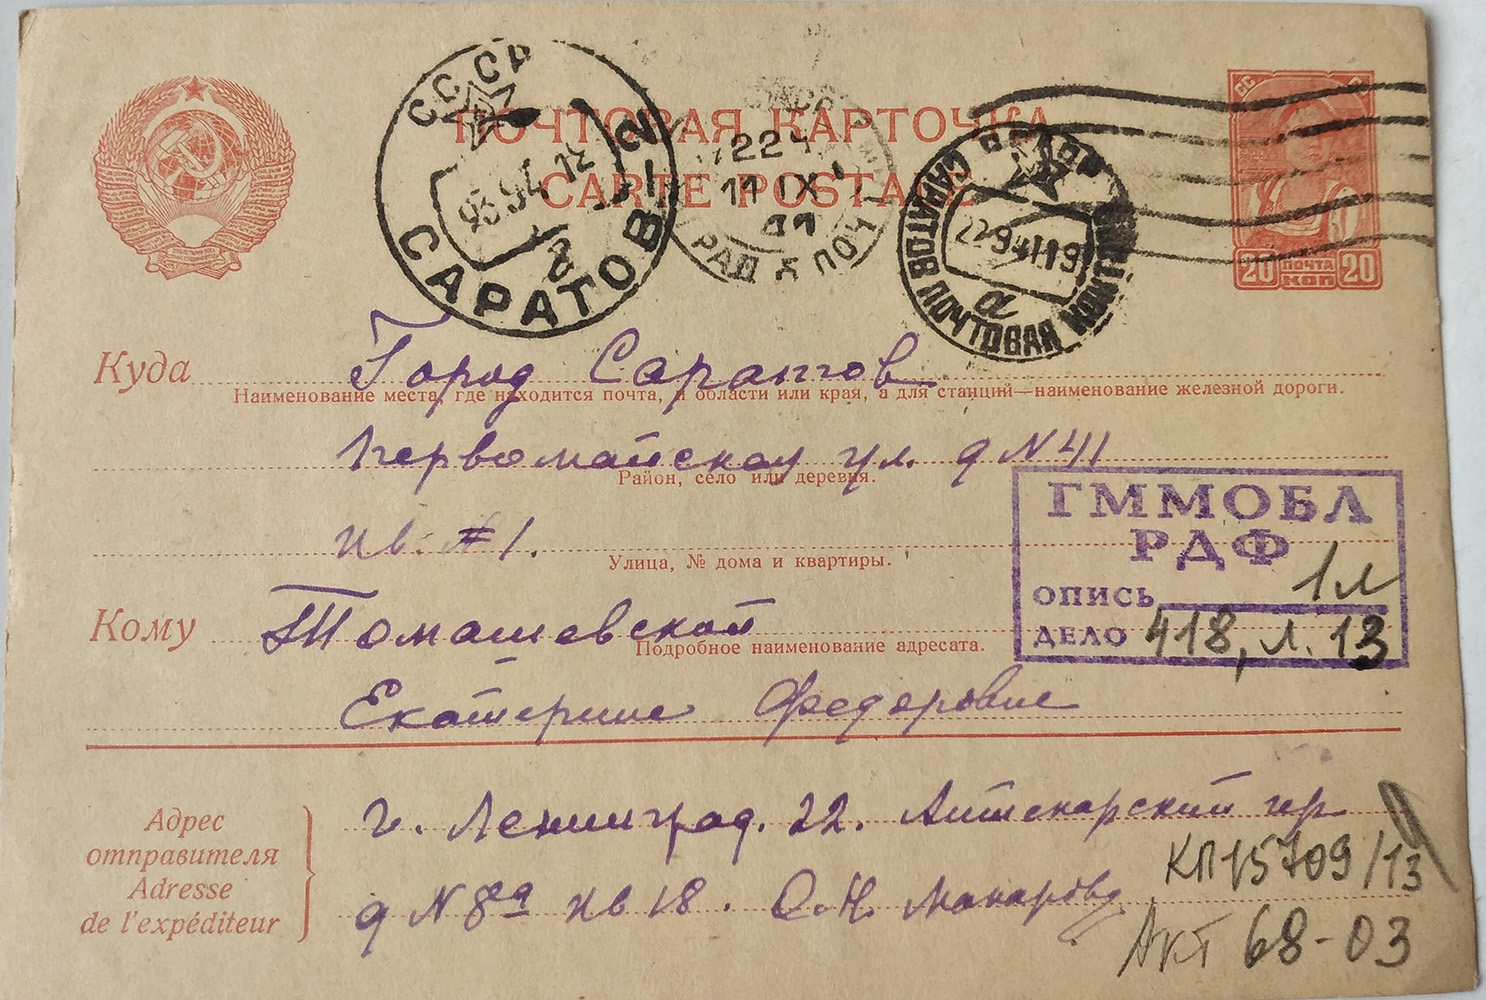 СССР
САРАТОВ-2
ПОЧТОВАЯ КАРТОЧКА
CARTE POSTALE
224
11 IX
41
САРАТОВ ПОЧТОВАЯ КОНТОРА
22 9 41 19
а
20 ПОЧТА КОП 20
Куда Город Саратов
Наименование места, где находится почта, и области или края, а для станций—наименование железной дороги.
Первомайская ул. д N 41
Район, село или деревня.
кв. # 1.
Улица, № дома и квартиры.
Кому Томашевской
Подробное наименование адресата.
Екатерине Федоровне
ГММОБЛ
РДФ
ОПИСЬ 1л
ДЕЛО 418, л. 13
Адрес
отправителя
Adresse
de l'expéditeur
г. Ленинград. 22. Аптекарский пр.
д N 8а кв 18. О.Н. Макарову
КП 15709/13
Акт 68-03